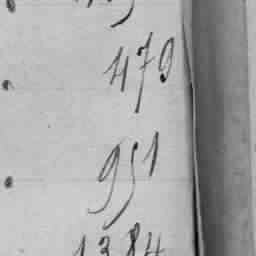 479
951
1384